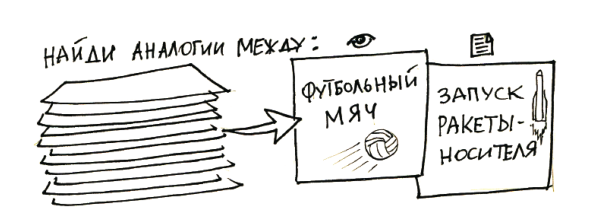 НАЙДИ АНАЛОГИИ МЕЖДУ:
ФУТБОЛЬНЫЙ
МЯЧ
ЗАПУСК
РАКЕТЫ-
НОСИТЕЛЯ